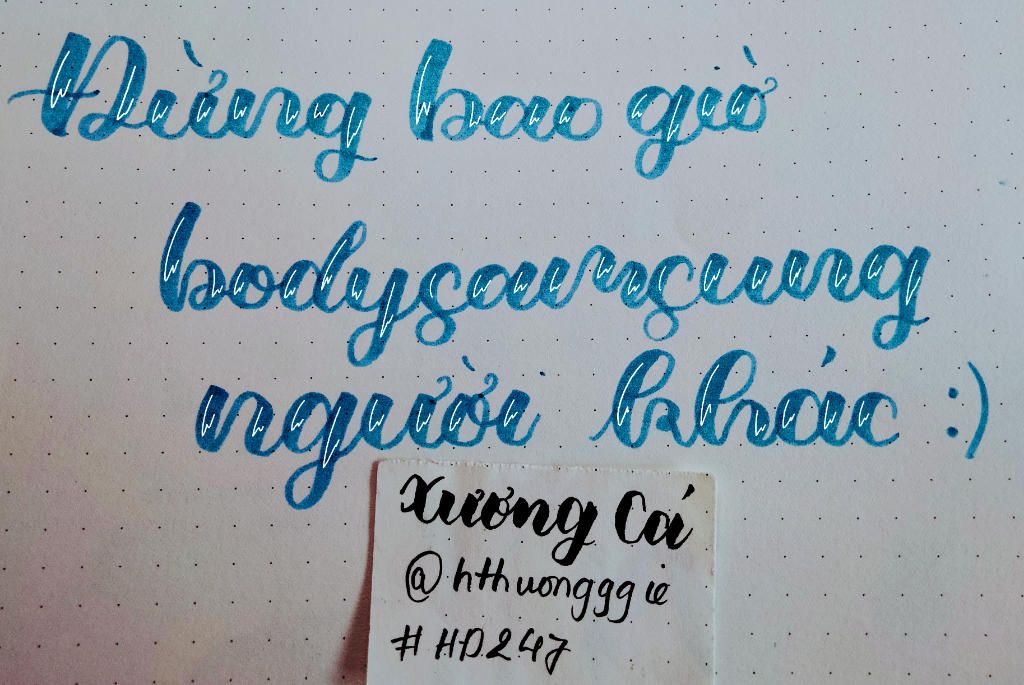 Đừng bao giờ
bodysamsung
người khác :)
Xương Cá
@hthuongggie
#HD247